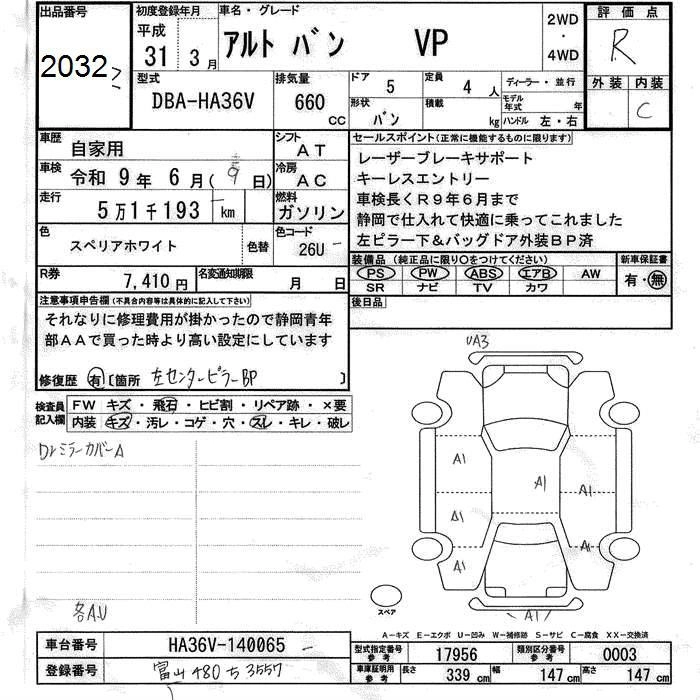 出品番号
2032
初度登録年月
平成
31 3月
車名・グレード
アルト バン VP
2WD
・
4WD
評価点
R
外装 内装
C
型式
DBA-HA36V
排気量
660 CC
ドア 5
定員 4 人
ディーラー・並行
形状 バン
積載 kg
モデル年式 年
ハンドル 左・右
車歴
自家用
シフト
AT
車検
令和 9年 6月( 9日)
冷房
AC
走行
5万1千193 km
燃料
ガソリン
色
スペリアホワイト
色替
色コード
26U
R券
7,410円
名変通知期限
月 日
セールスポイント(正常に機能するものに限ります)
レーザーブレーキサポート
キーレスエントリー
車検長くR9年6月まで
静岡で仕入れて快適に乗ってこれました
左ピラー下&バッグドア外装BP済
装備品(純正品に限り〇をつけてください)
PS PW ABS エアB AW
SR ナビ TV カワ
新車保証書
有・無
後日品
注意事項申告欄(不具合内容等は具体的に記入して下さい)
それなりに修理費用が掛かったので静岡青年
部AAで買った時より高い設定にしています
修復歴 有 [箇所 左センターピラーBP ]
検査員
記入欄
FW キズ・飛石・ヒビ割・リペア跡・×要
内装 キズ・汚レ・コゲ・穴・スレ・キレ・破レ
Drミラーカバー A
各A.U
UA3
A1
A1
A1
A1
A1
A1
A1
A1
A1
スペア
A-キズ E-エクボ U-凹み W-補修跡 S-サビ C-腐食 XX-交換済
車台番号
HA36V-140065
登録番号
富山 480 ち 3557
型式指定番号
参考
17956
類別区分番号
参考
0003
車庫証明用
参考
長さ 339 cm
幅 147 cm
高さ 147 cm